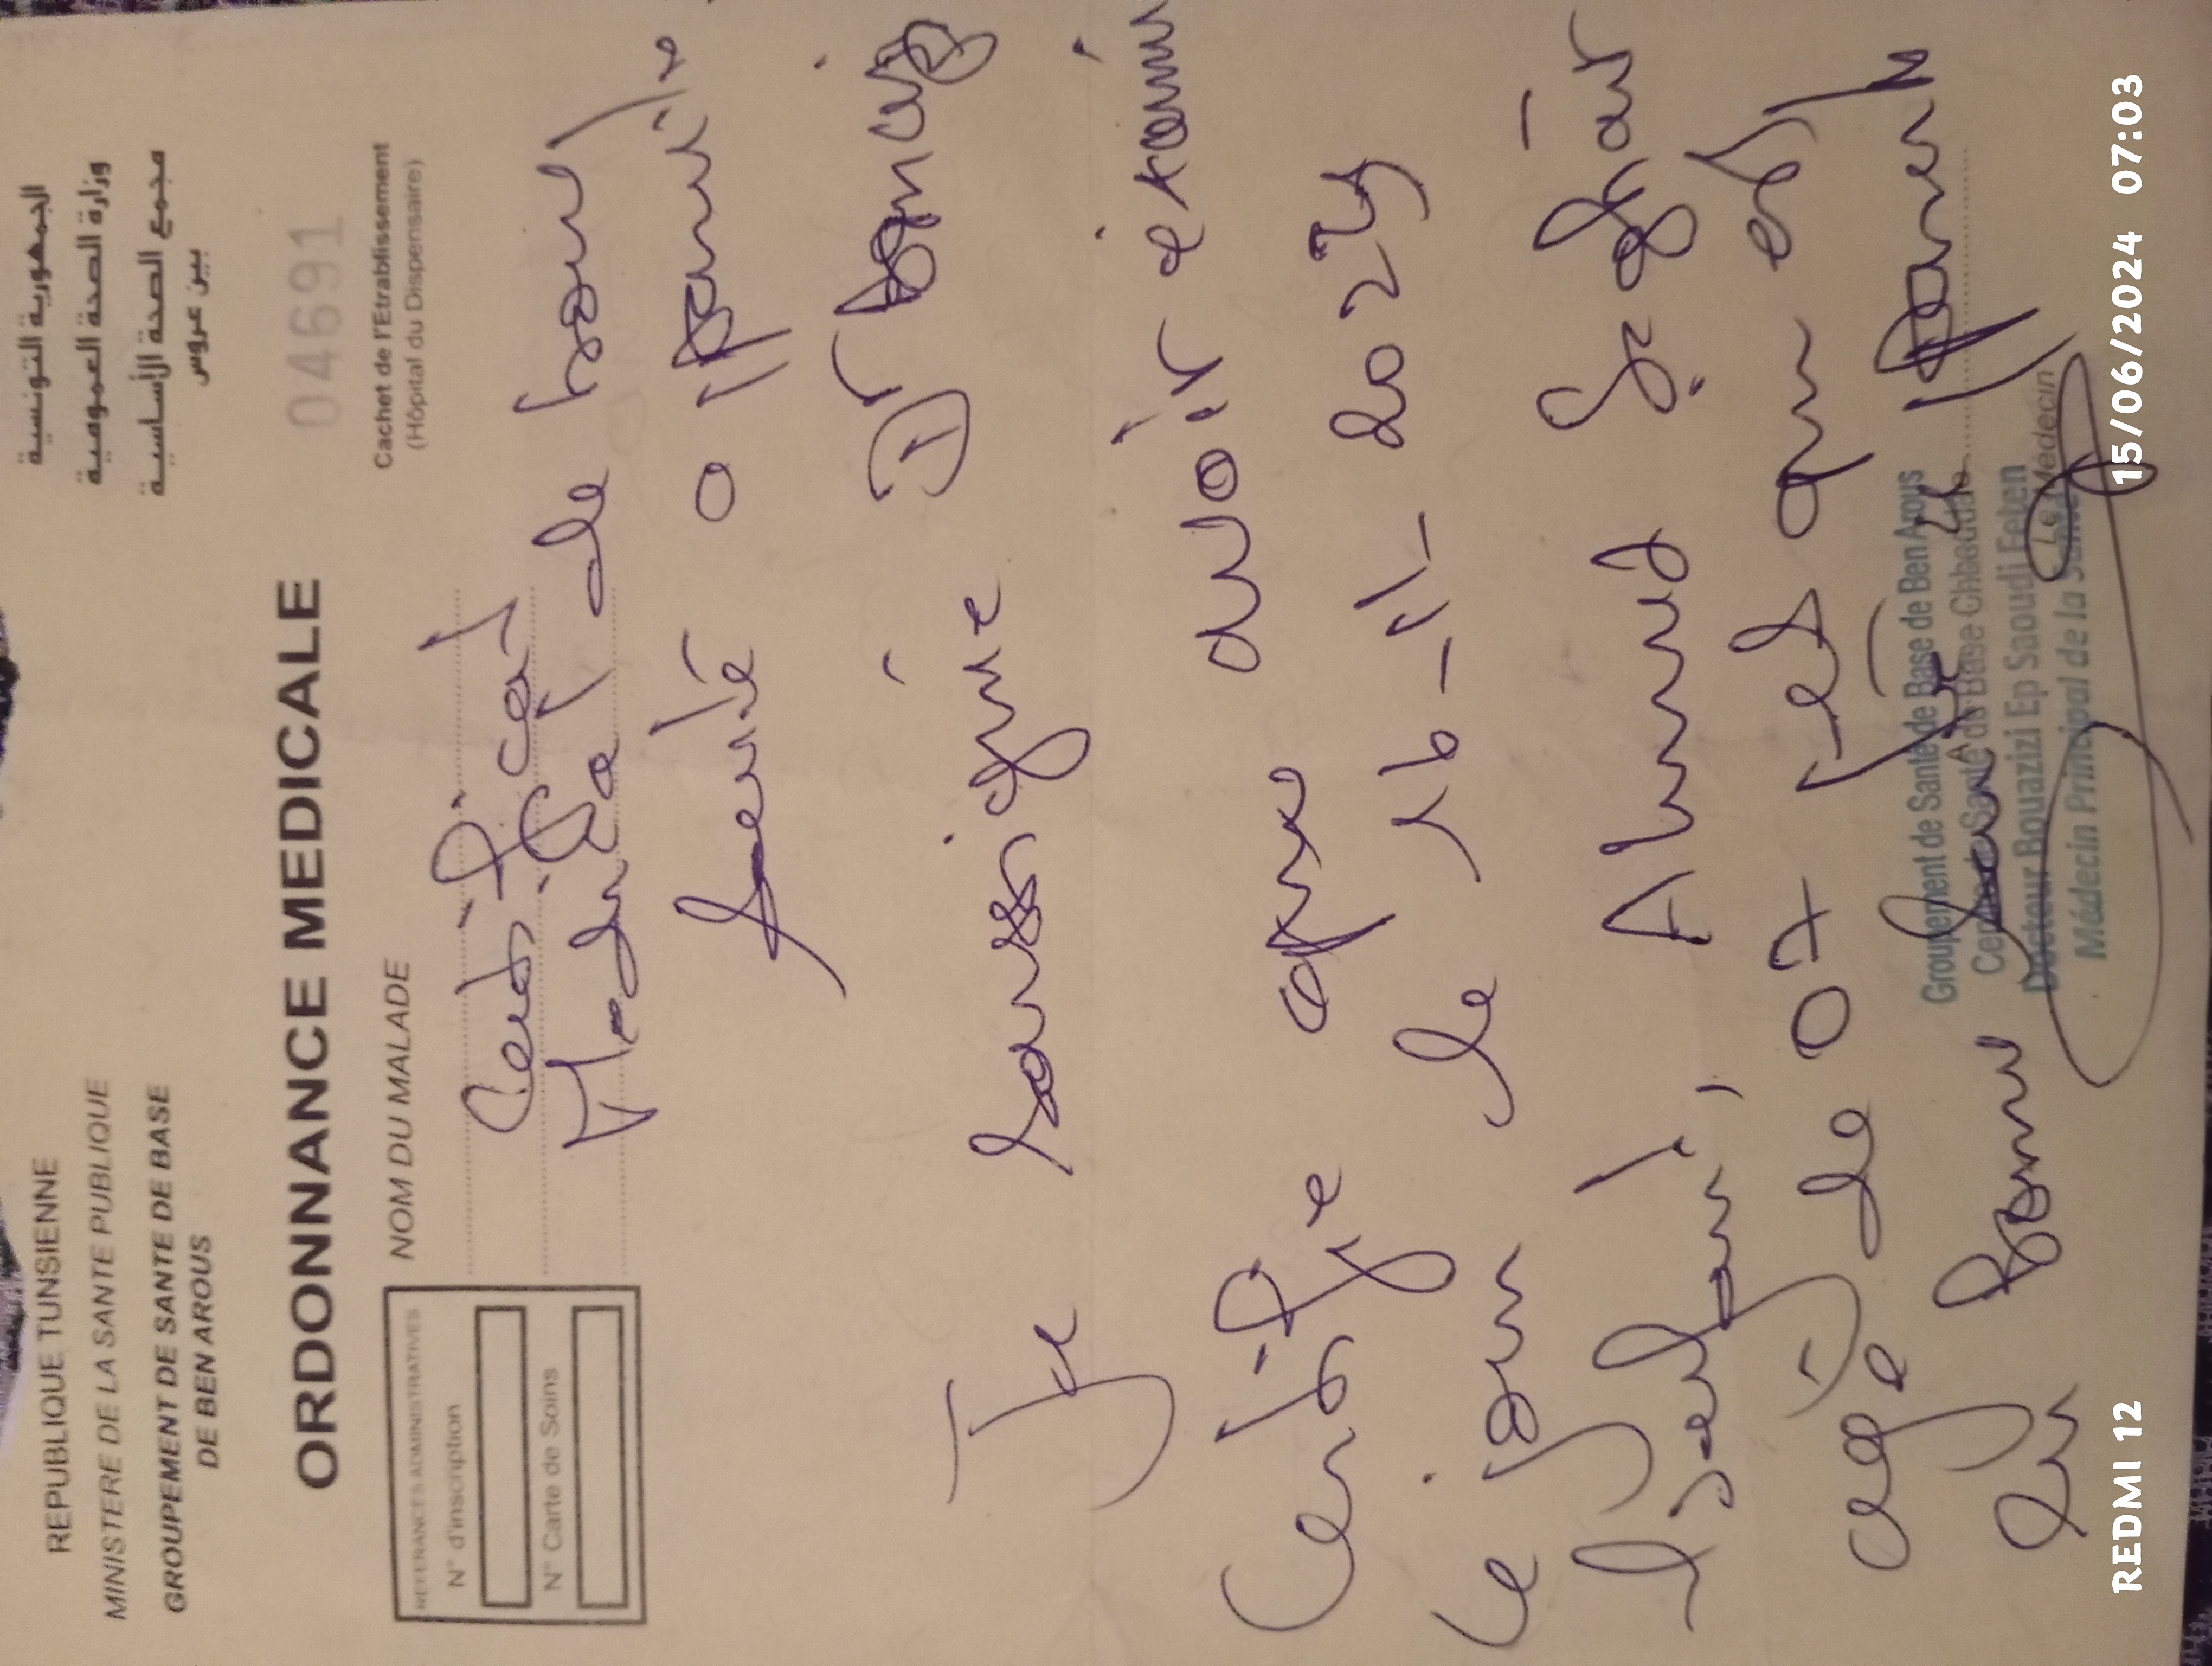 REPUBLIQUE TUNSIENNE
MINISTERE DE LA SANTE PUBLIQUE
GROUPEMENT DE SANTE DE BASE
DE BEN AROUS
الجمهورية التونسية
وزارة الصحة العمومية
مجمع الصحة الأساسية
ببن عروس
ORDONNANCE MEDICALE
04691
REFERANCES ADMINISTRATIVES
N° d'inscription
N° Carte de Soins
NOM DU MALADE
Cachet de l'Etrablissement
(Hôpital du Dispensaire)
Certificat
Medical de bonne
Santé
Je soussigné Dr
Certifie que avoir examiné
Ce jour le 2024
l'enfant Ahmed
agé de 07 qui est
en bonne Santé
Groupement de Santé de Base de Ben Arous
Centre Santé de Base Chbedda
Docteur Bouazizi Ep Saoudi Feten
Médecin Principal de la Santé
Le Médecin
REDMI 12
15/06/2024 07:03